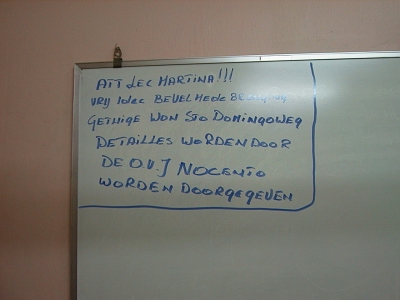 ATT LEC MARTINA!!!
VRIJ 10DEC BEVEL MEDE
GETUIGE WON STO DOMINGOWEG
DETAILLES WORDEN DOOR
DE O.V.J NOCENTO
WORDEN DOORGEGEVEN